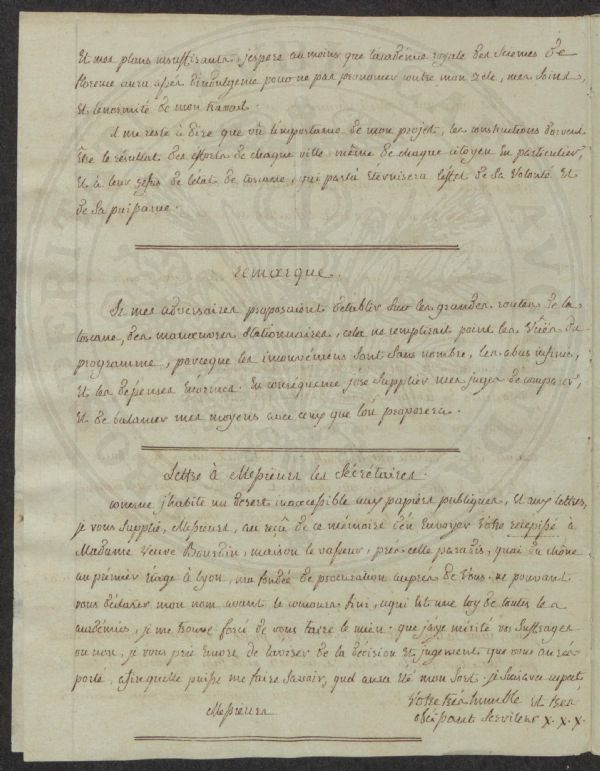 et mes plans insuffisants, j'espere au moins que l'académie royale des sciences de
florence aura assés d'indulgence pour ne pas prononcer contre mon zele, mes soins,
et l'enormité de mon travail.
il me reste à dire que vû l'importance de mon projet, les constructions doivent
être le résultat des efforts de chaque ville même de chaque citoyen en particulier,
et à leur de l'état de toscane, qui par là eternisera l'effet de sa volonté et
de sa puissance.
remarque.
Si mes adversaires proposaient d'établir sur les grandes routes de la
toscane, des manoeuvres stationnaires, cela ne remplirait point les vuës du
programme, parceque les inconvéniens sont sans nombre, les abus infinis,
et les dépenses énormes. En conséquence j'ose supplier mes juges de comparer,
et de balancer mes moyens avec ceux que l'on proposera.
Lettre à Messieurs les Sécrétaires.
comme j'habite un desert inaccessible aux papiers publiques, et aux lettres,
je vous supplie, Messieurs, au reçû de ce mémoire d'en envoyer votre recepissé à
Madame Veuve Bourdin, maison le vasseur, près celle paradis, quai du rhône
au prémier étage à lyon, ma fondée de procuration auprès de vous. ne pouvant
vous déclarer mon nom avant le concours fini, aqui est une loy de toutes les
académies, je me trouve forcé de vous taire le mien. que j'aÿe mérité vos suffrages
ou non, je vous prie encore de l'aviser de la décision et jugement que vous aurés
porté, afin quelle puisse me faire savoir, quel aura été mon sort. je suis avec respect,
Messieurs
Votre très humble et très
obéissant serviteur X. X. X.